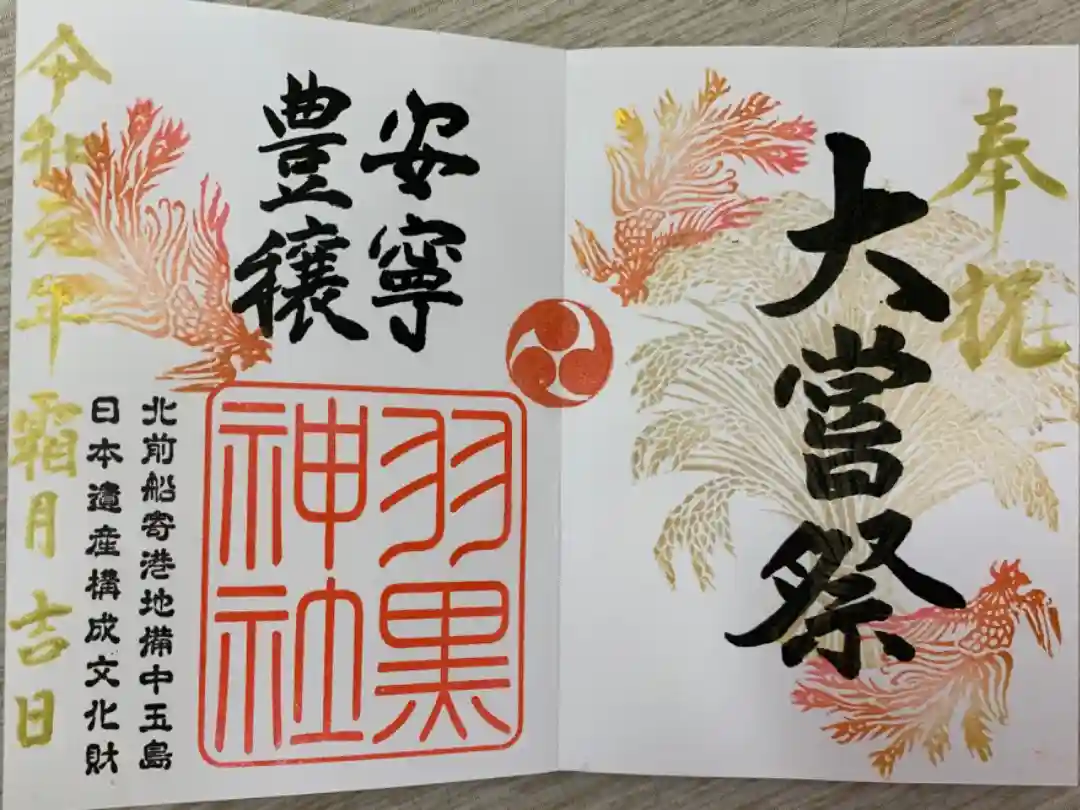 奉祝
大嘗祭
安寧
豊穣
羽黒
神社
北前船寄港地備中玉島
日本遺産構成文化財
令和元年霜月吉日